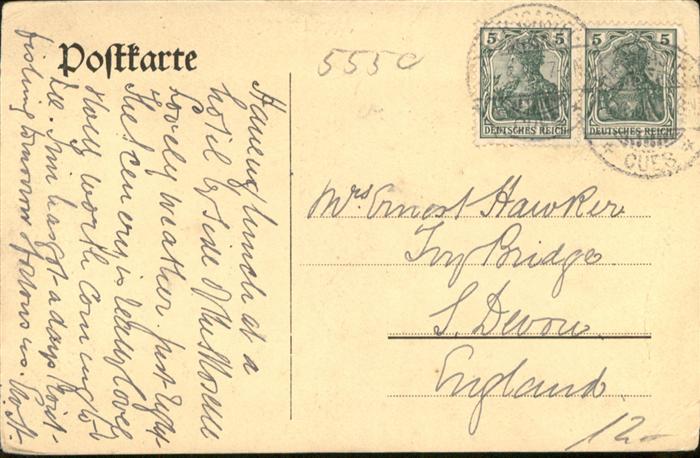 Postkarte
5550
5 5
DEUTSCHES REICH DEUTSCHES REICH
CUES
Having lunch at a
hotel by side of the Moselle
Lovely weather. just
The Scenery is really lovely
worth coming to
a days
fishing tomorrow
Mrs Ernest Hawker
Ivy Bridge
S. Devon
England
12-